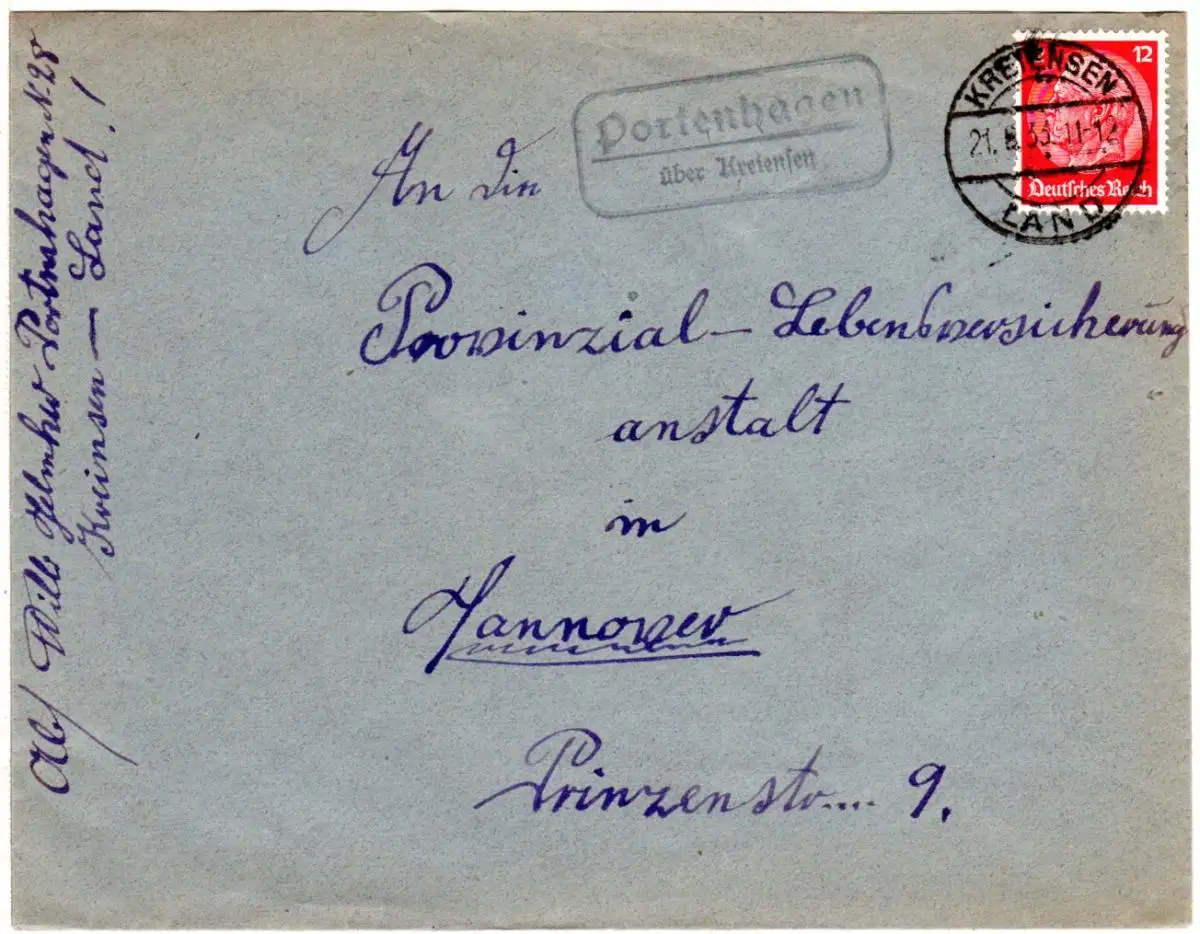 12
KREIENSEN
21. 8. 33. 11-12
LAND
Deutsches Reich
Portenhagen
über Kreiensen
An die
Provinzial - Lebensversicherung
anstalt
in
Hannover
Prinzenstr.... 9.
Abs/ Willi Helmker Portenhagen N. 28
Kreinsen — Land. !